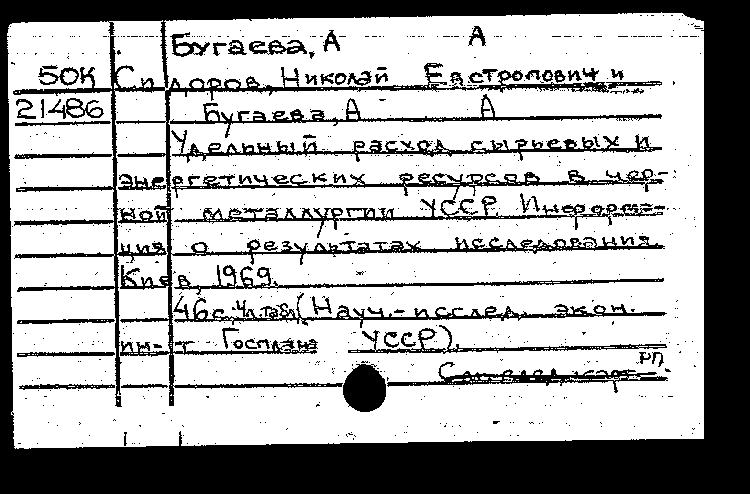 Бугаева, А А
50К Сидоров, Николай Евстропович и
21486 Бугаева, А А
Удельный расход сырьевых и
энергетических ресурсов в чер-
ной металлургии УССР. Информа-
ция о результатах исследования.
Киев, 1969.
46с. (Науч.-исслед. экон.
ин-т Госплана УССР).
РП